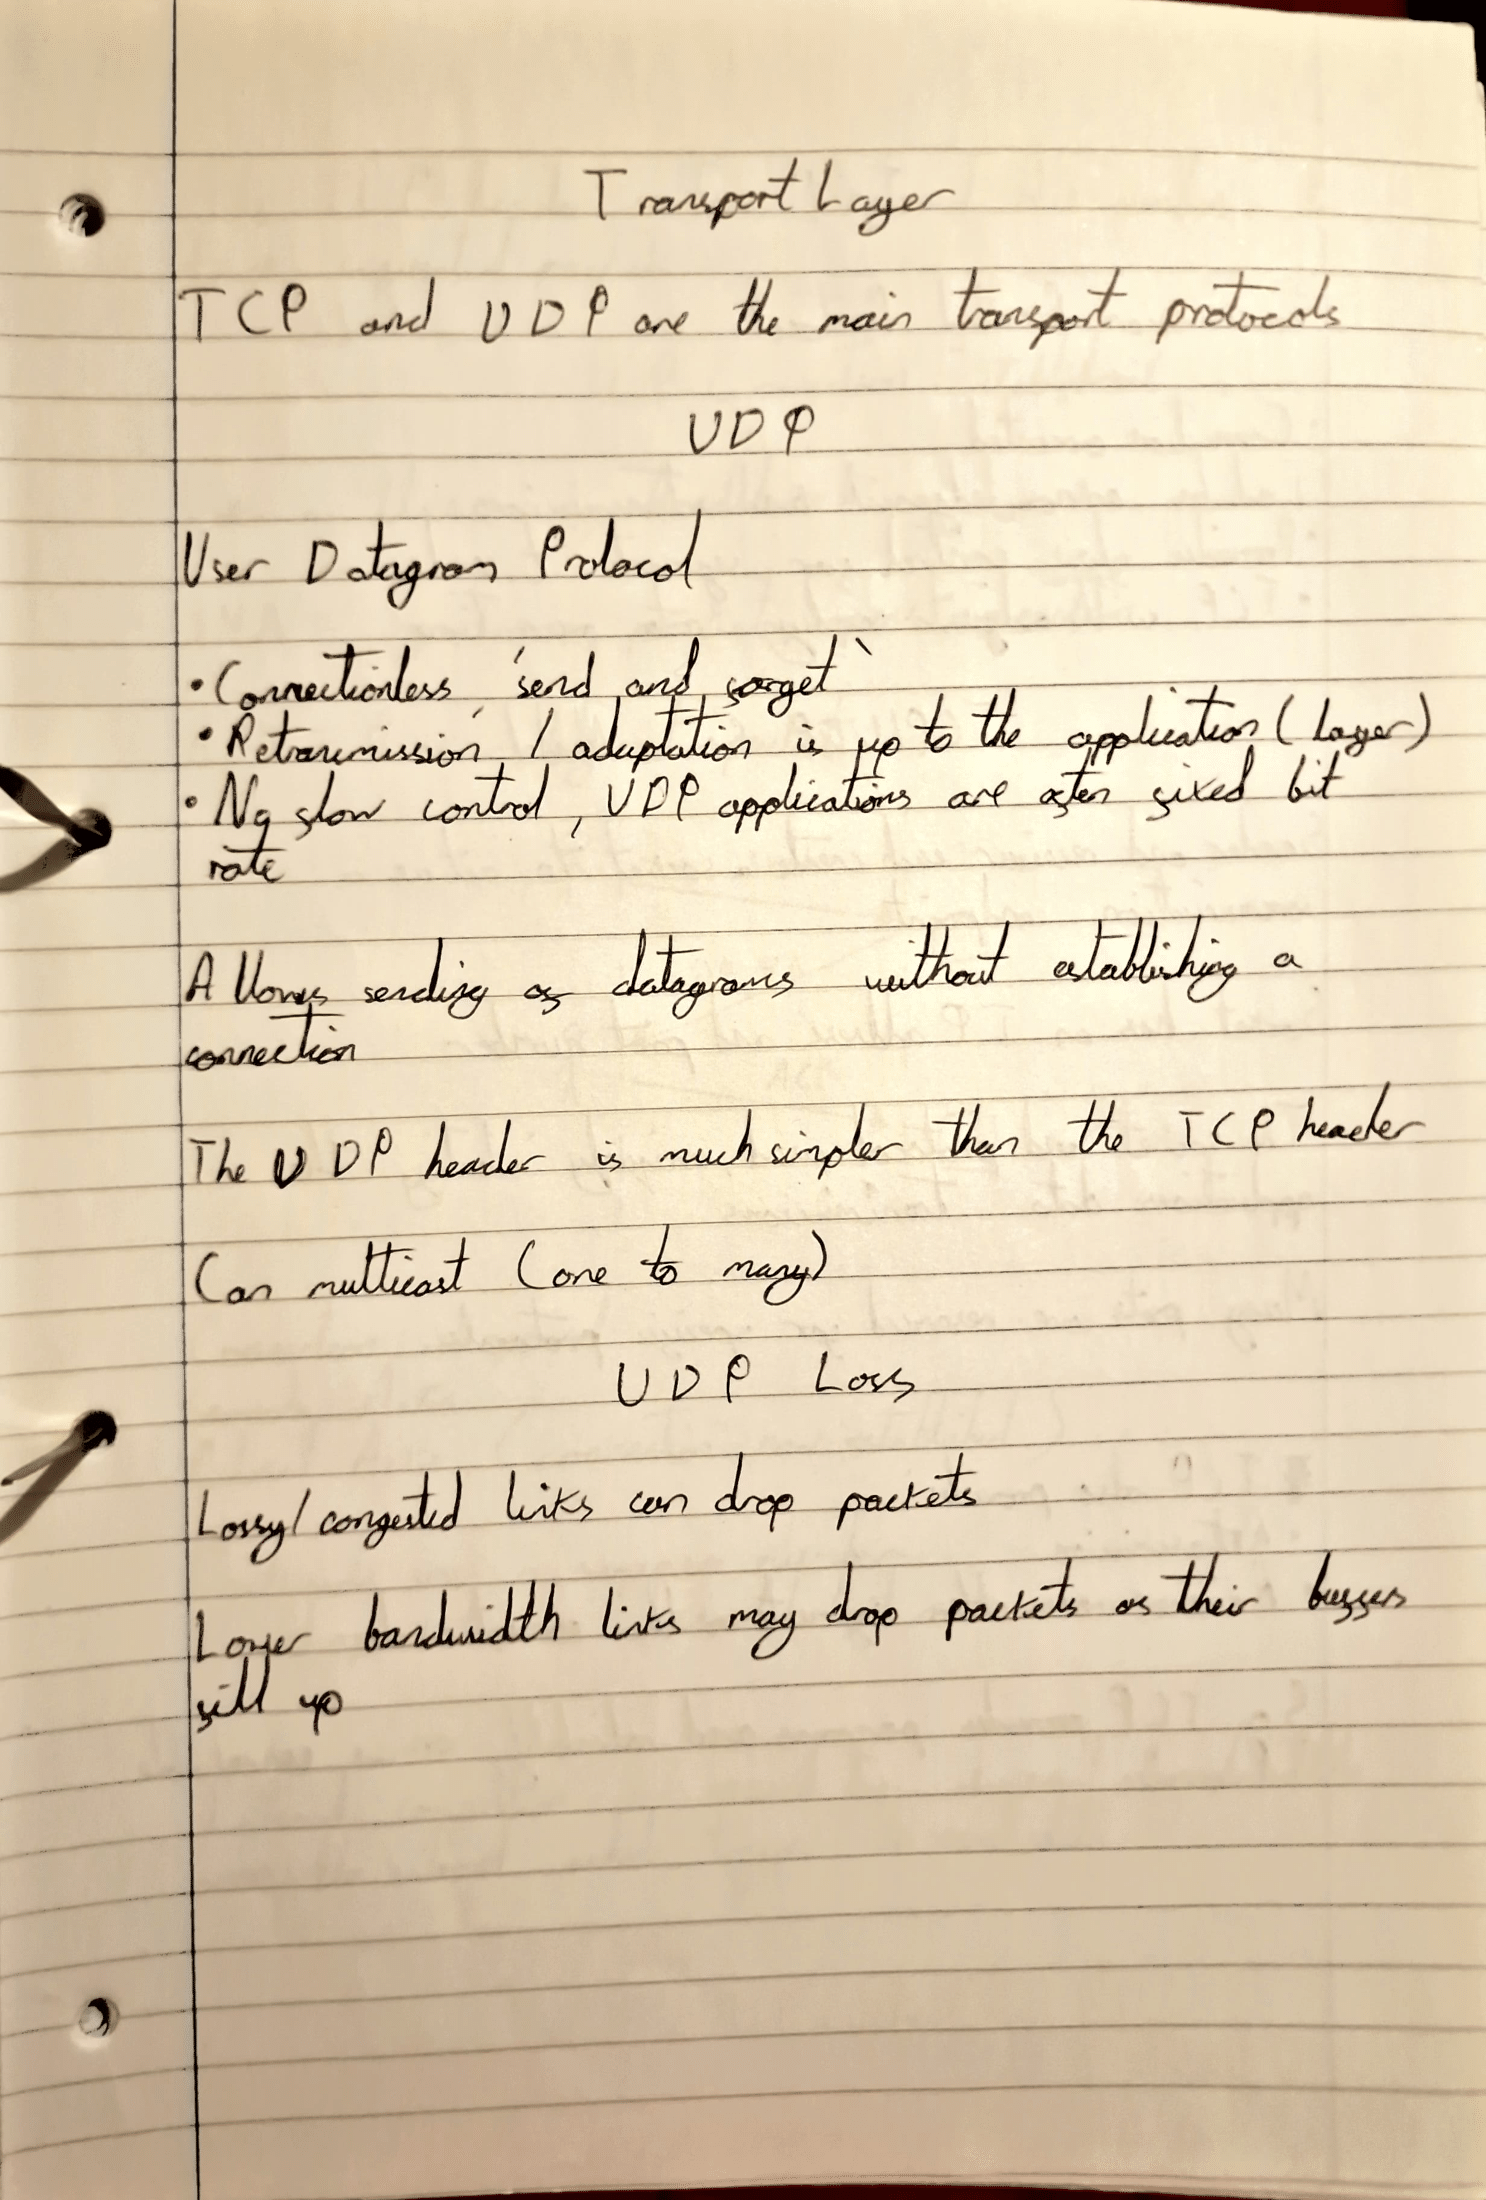 Transport Layer
TCP and UDP are the main transport protocols
UDP
User Datagram Protocol
• Connectionless, 'send and forget'
• Retransmission / adaptation is up to the application (Layer)
• No flow control, UDP applications are often fixed bit
rate
Allows sending of datagrams without establishing a
connection
The UDP header is much simpler than the TCP header
Can multicast (one to many)
UDP Loss
Lossy/congested links can drop packets
Lower bandwidth links may drop packets as their buffers
fill up